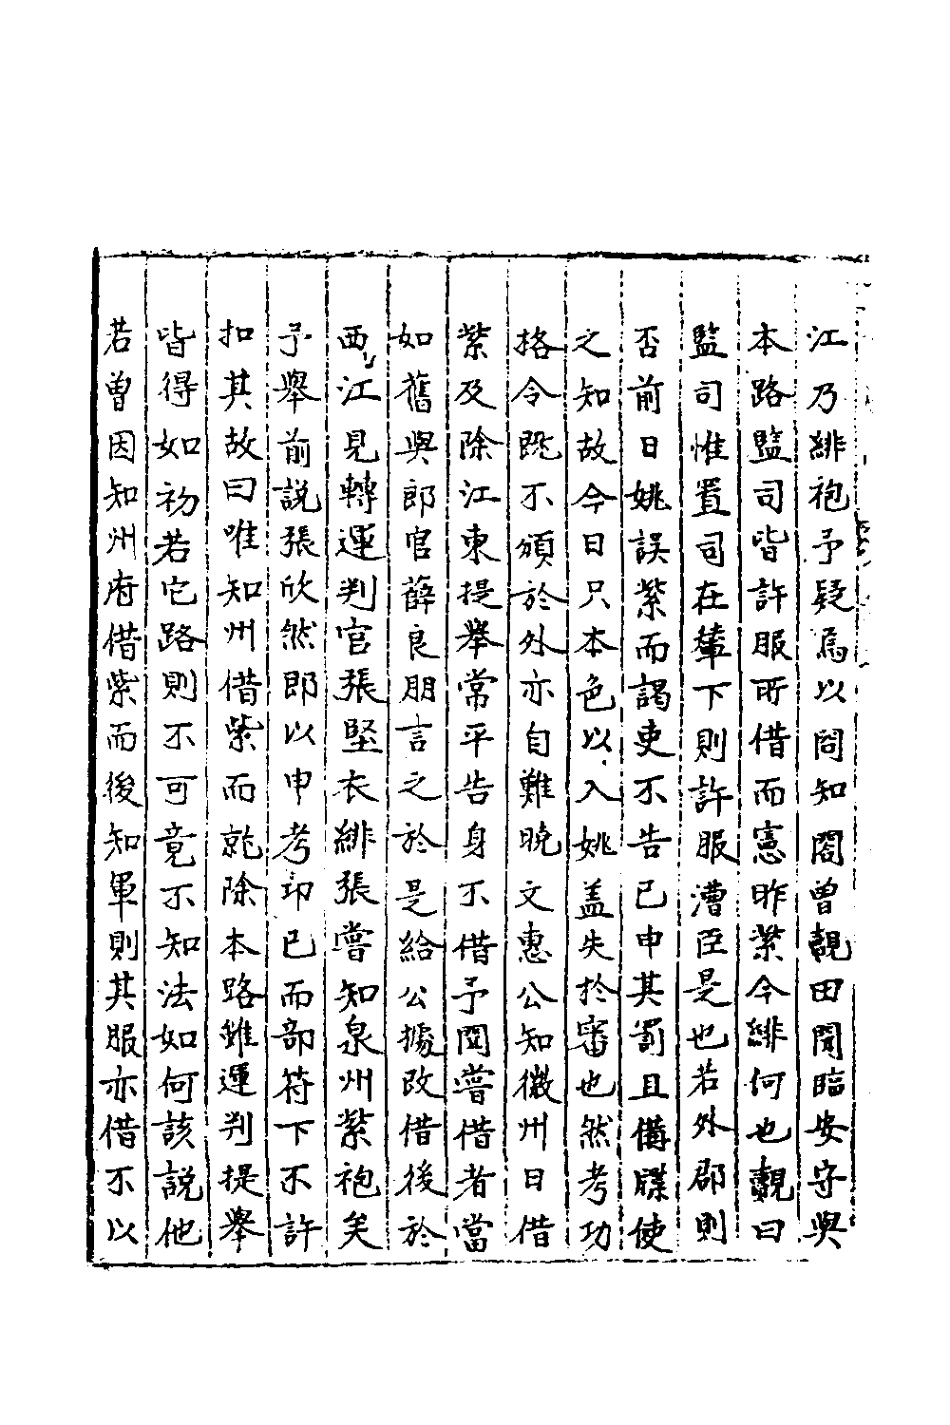 江乃緋袍予疑焉以問知閤曾覿田聞臨安守與
本路監司皆許服所借而憲昨紫今緋何也覿曰
監司惟置司在輦下則許服漕臣是也若外郡則
否前日姚誤紫而謁吏不告已申其罰且備牒使
之知故今日只本色以入姚盖失於審也然考功
格令既不頒於外亦自難曉文惠公知徽州日借
紫及除江東提舉常平告身不借予聞嘗借者當
如舊與郎官薛良朋言之於是給公據改借後於
西江見轉運判官張堅衣緋張嘗知泉州紫袍矣
予舉前說張欣然即以申考功已而部符下不許
扣其故曰唯知州借紫而就除本路雖運判提舉
皆得如初若它路則不可竟不知法如何該說他
若曾因知州府借紫而後知軍則其服亦借不以